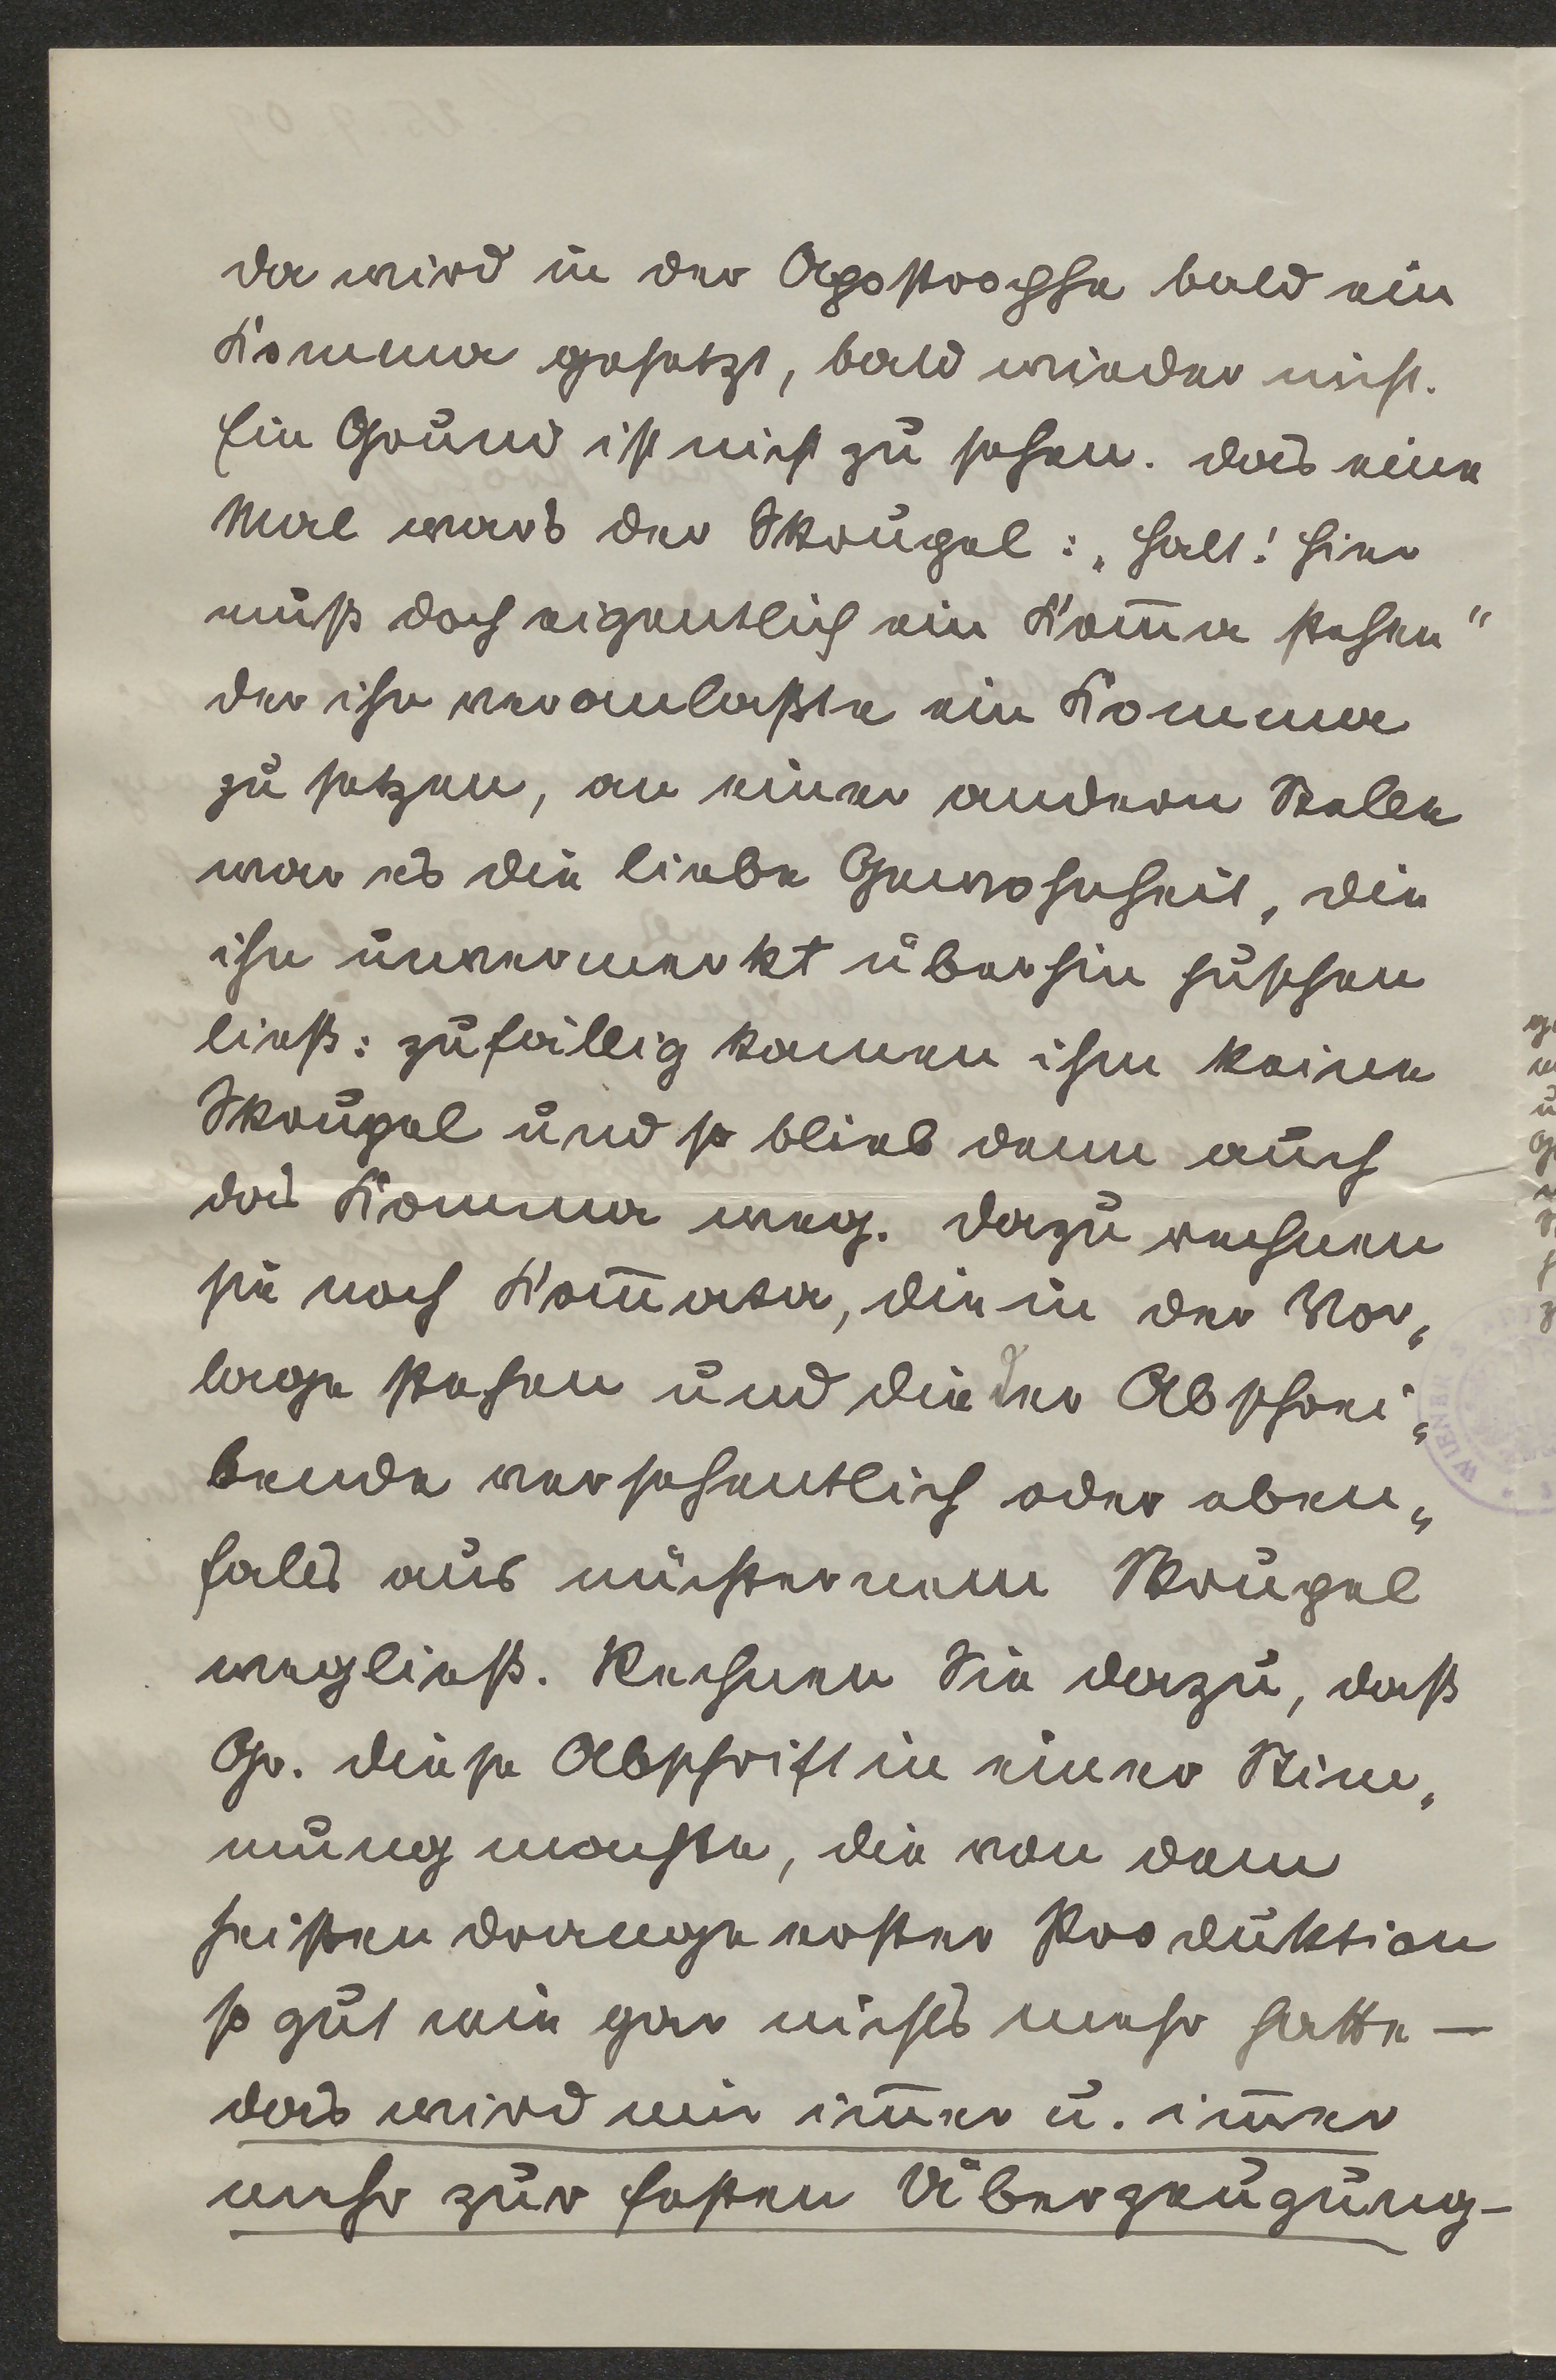 da wird in der Apostrophe bald ein
Komma gesetzt, bald wieder nicht.
Ein Grund ist nicht zu sehen. das eine
Mal wars der Skrupel: „halt! hier
muß doch eigentlich ein Kom̅a stehen“
der ihn veranlaßte ein Komma
zu setzen, an einer andern Stelle
war es die liebe Gewohnheit, die
ihn unvermerkt überhin huschen
ließ: zufällig kamen ihm keine
Skrupel und so blieb denn auch
das Komma weg. dazu rechnen
sie noch Kom̅ata, die in der Vor„
lage stehen und die der Abschrei„
bende versehentlich oder eben„
falls aus nüchternem Skrupel
wegließ. Rechnen Sie dazu, daß
Gr. diese Abschrift in einer Stim„
mung machte, die von dem
heißen drange erster Produktion
so gut wie gar nichts mehr hatte —
das wird mir im̅er u. im̅er
mehr zur festen Überzeugung —
WIENER